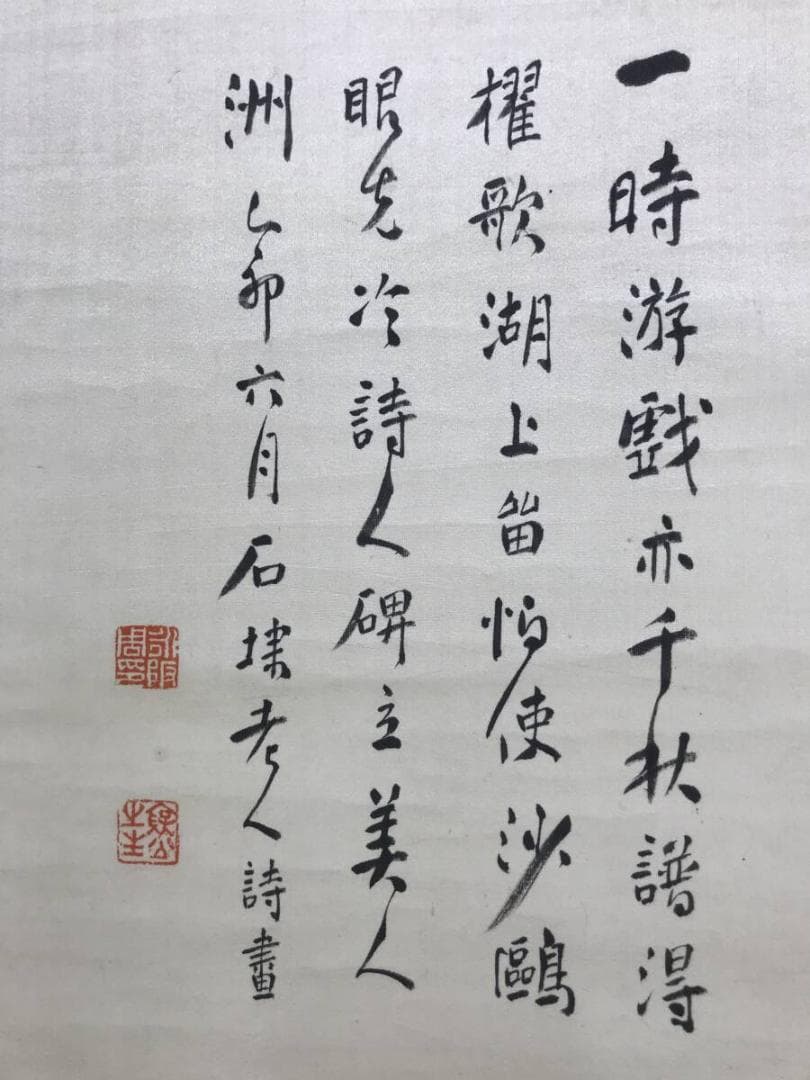 一時游戲亦千秋譜得
櫂歌湖上留怕使沙鷗
眼先冷詩人碑立美人
洲 乙卯六月石埭老人詩畫